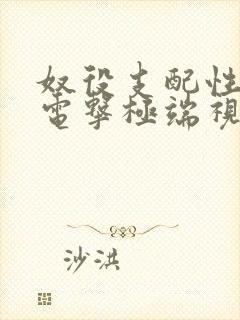 奴役支配性
電擊極端視
沙洪